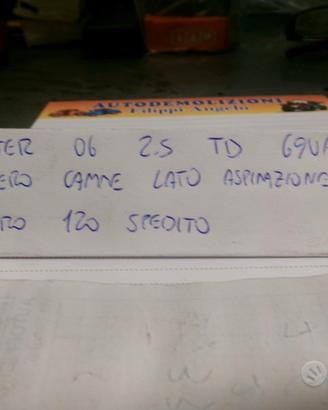 AUTODEMOLIZIONI
Filippo Angelo
TER 06 2.5 TD G9U
ERO CAMME LATO ASPIRAZIONE
RO 120 SPEDITO